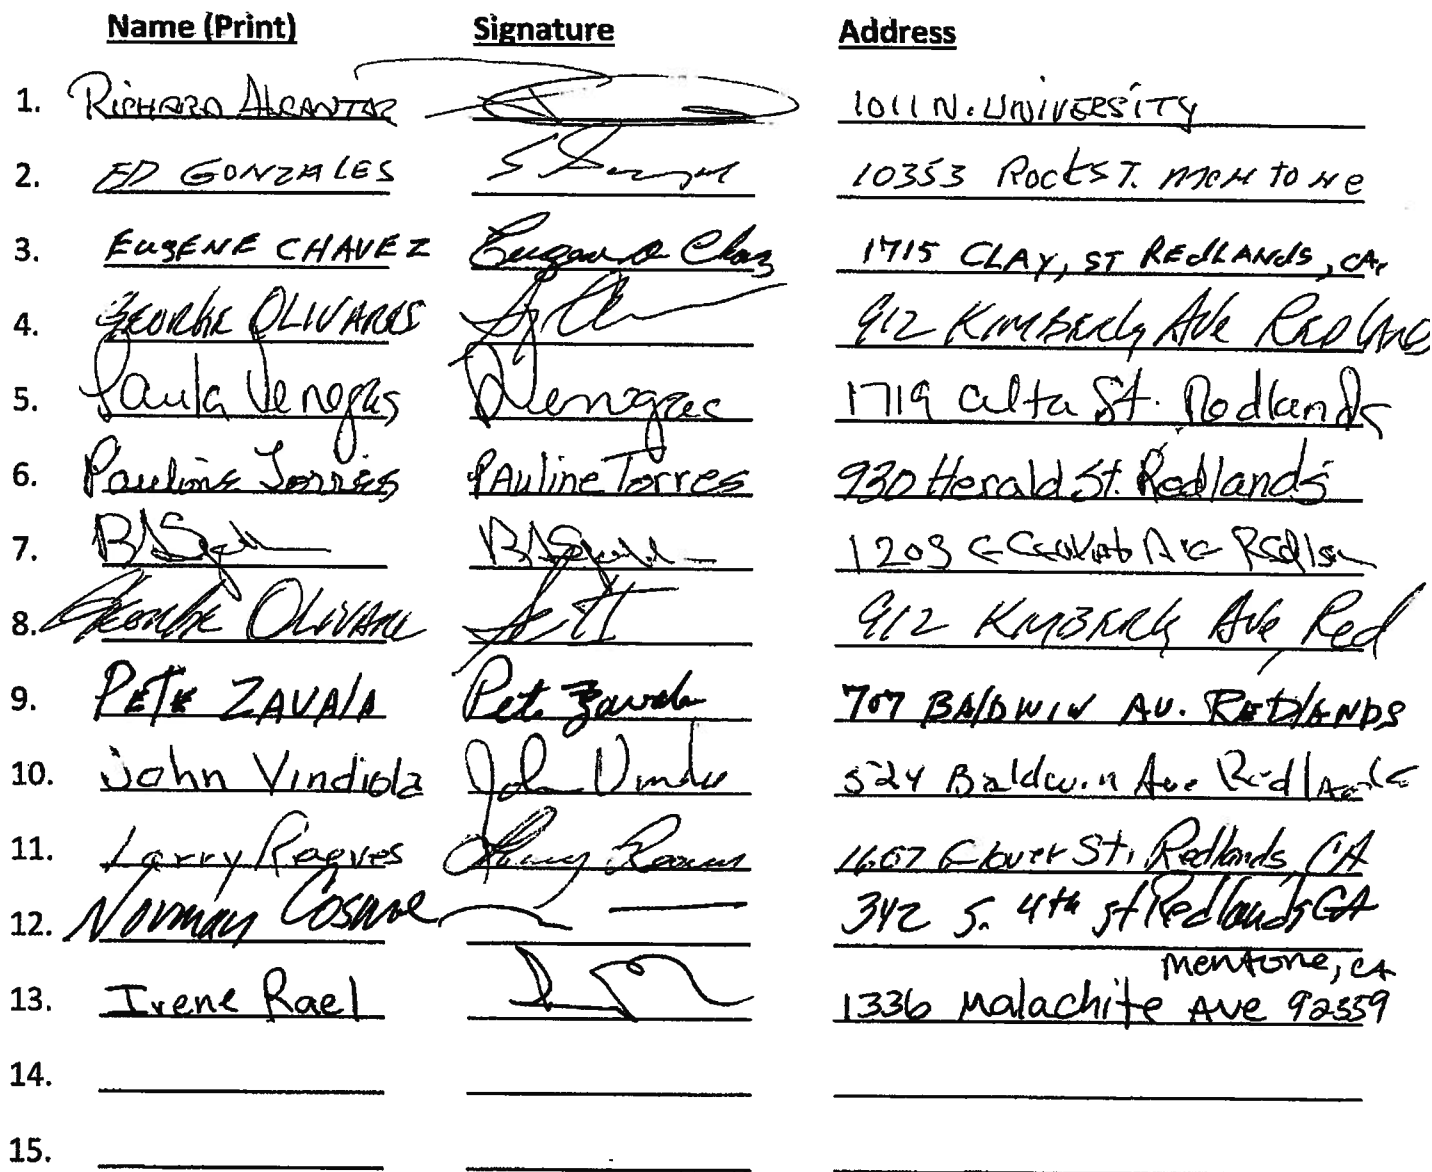 Name (Print) Signature Address
1. RICHARD ALCANTAR 1011 N. UNIVERSITY
2. ED GONZALES 10353 Rock ST. mentone
3. EUGENE CHAVEZ 1715 CLAY, ST REDLANDS, CA.
4. GEORGE OLIVARES 912 KIMBERLY AVE REDLANDS
5. Paula Venegas Venegas 1719 Alta St. Redlands
6. Pauline Torres PAuline Torres 930 Herald St. Redlands
7. 1203
8. GEORGE OLIVARE 912 KIMBERLY AVE, Red
9. PETE ZAVAlA Pete Zavala 707 BAlDWIN AV. REDlANDS
10. John Vindiola John 524 Baldwin Ave Redlands
11. Larry Reeves Larry 1607 Clover St, Redlands, CA
12. Norman 342 S. 4th st Redlands CA
mentone, CA
13. Irene Rael 1336 Malachite Ave 92359
14.
15.